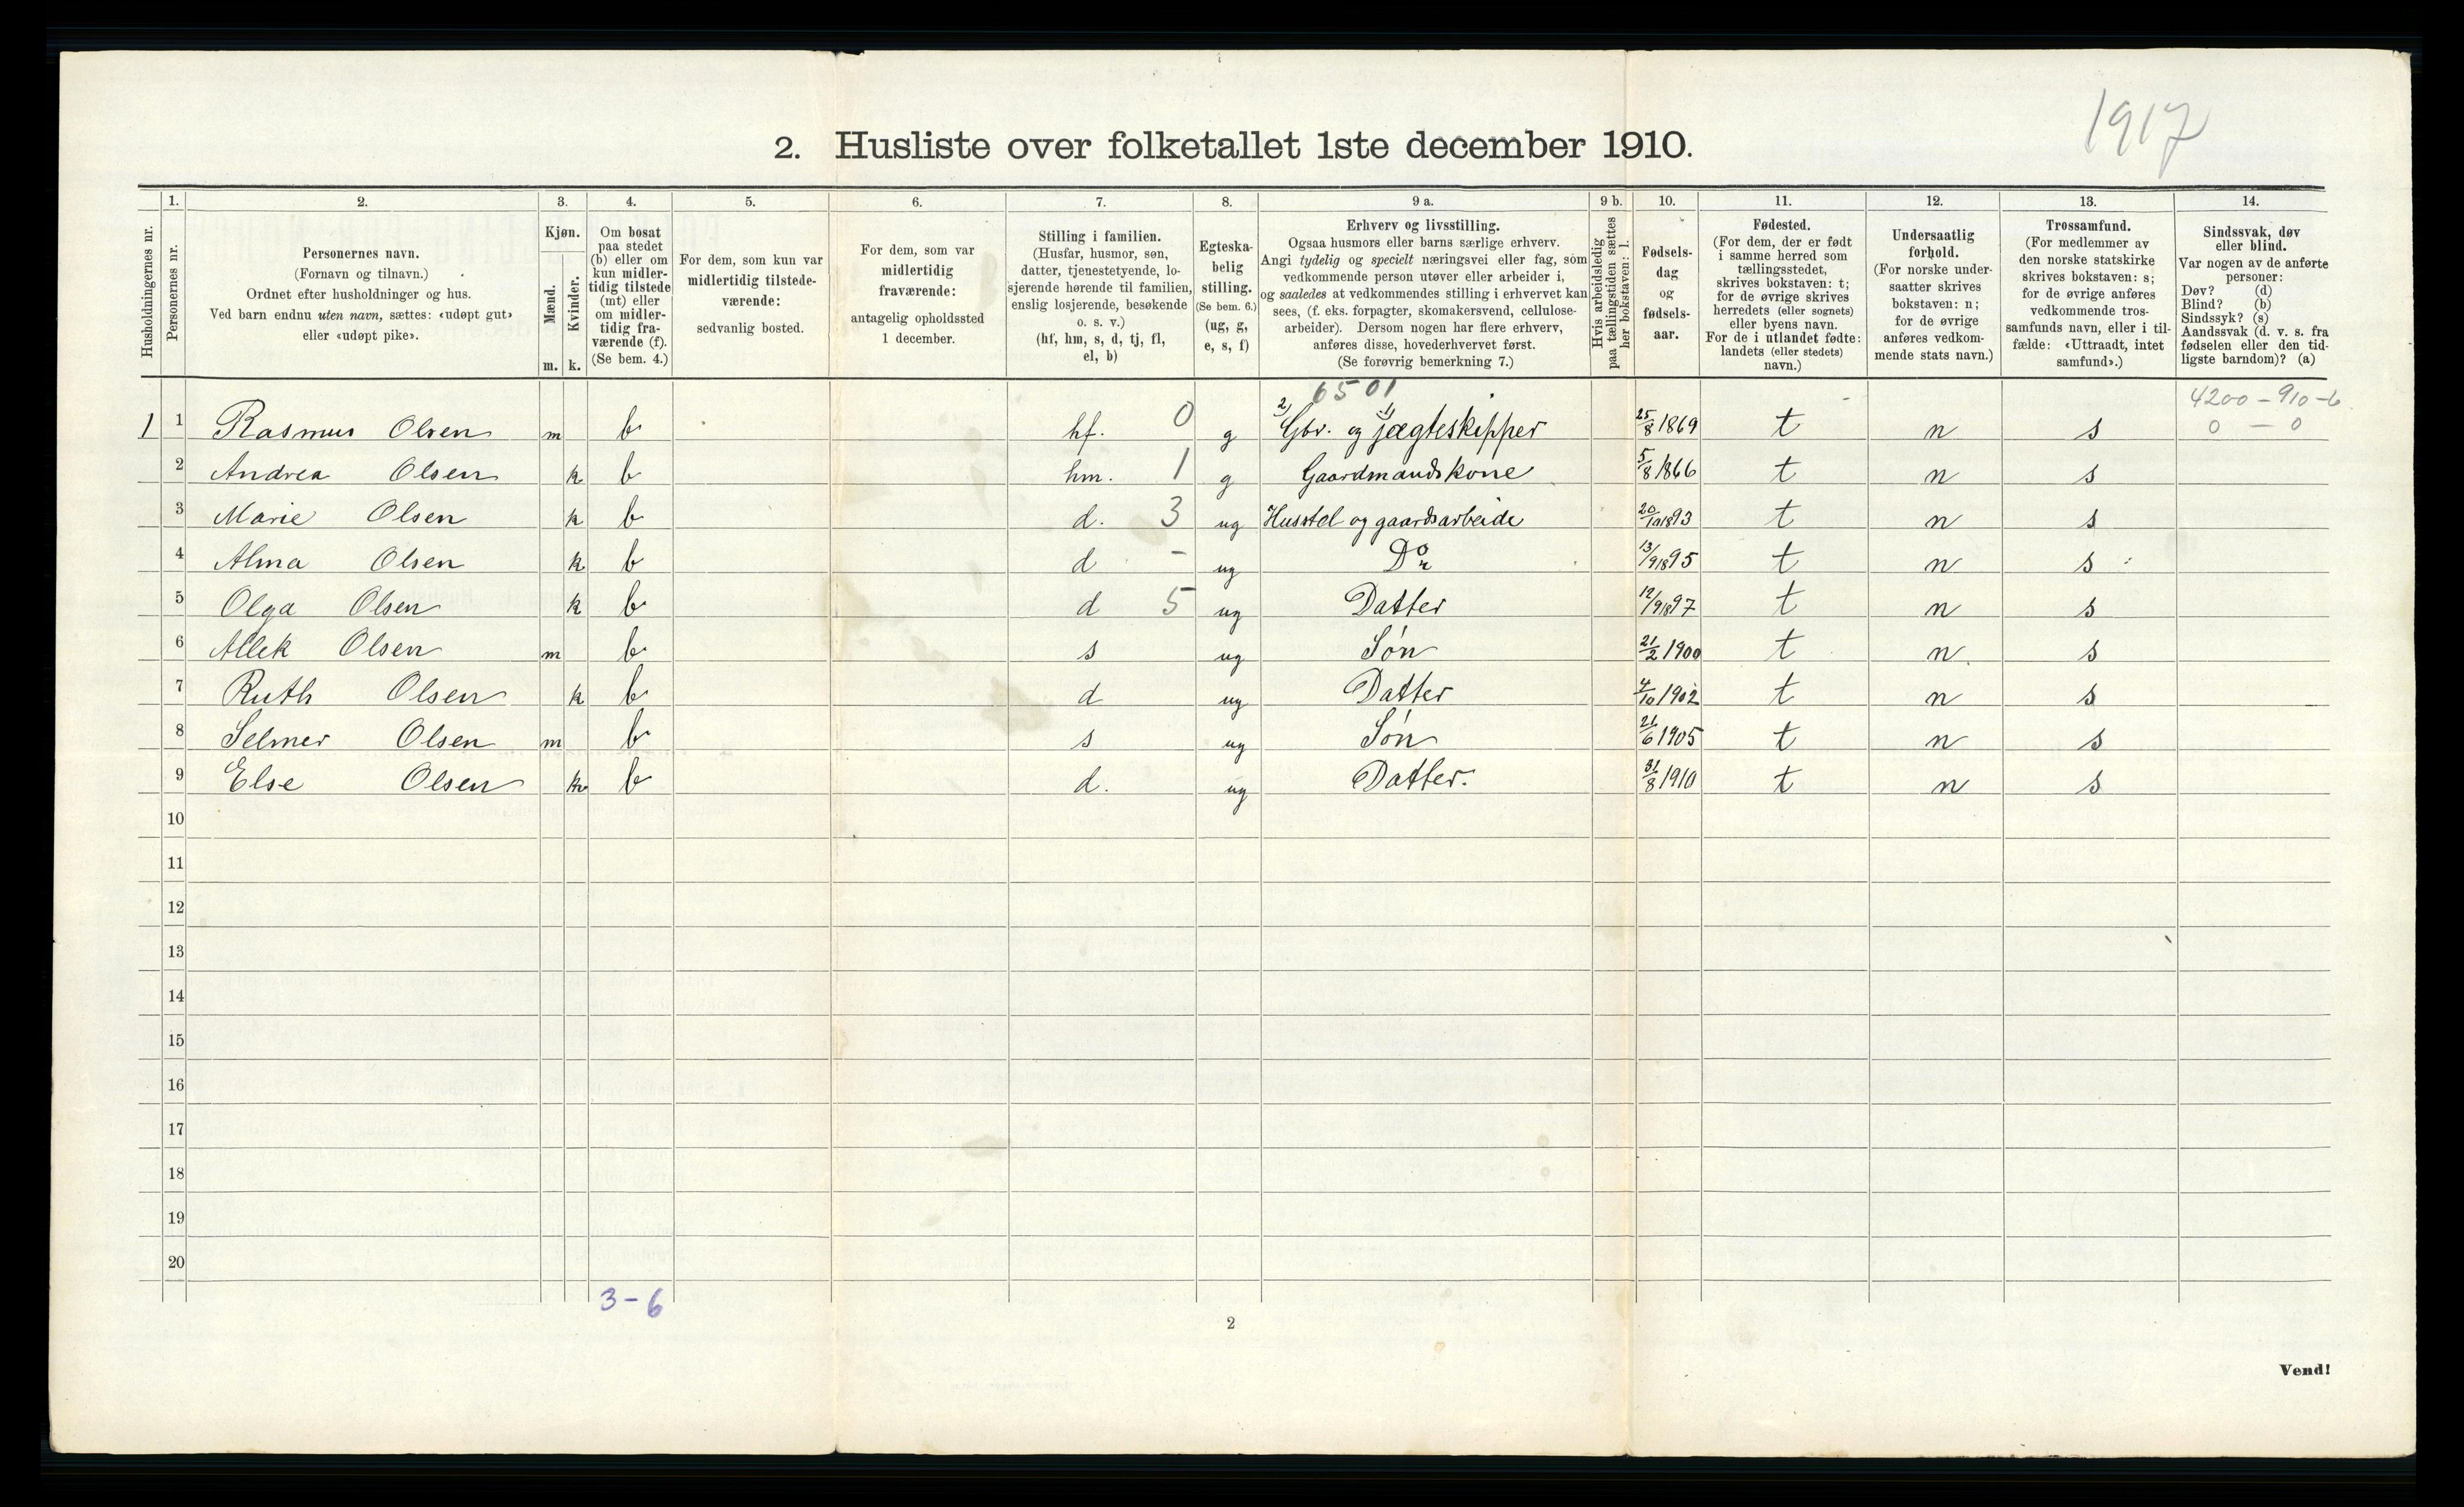 1917
2. Husliste over folketallet 1ste december 1910.
1. 2. 3. 4. 5. 6. 7. 8. 9 a. 9 b. 10. 11. 12. 13. 14.
Husholdningernes nr.
Personernes nr.
Personernes navn.
(Fornavn og tilnavn.)
Ordnet efter husholdninger og hus.
Ved barn endnu uten navn, sættes: «udøpt gut»
eller «udøpt pike».
Kjøn.
Mænd.
Kvinder.
m. k.
Om bosat
paa stedet
(b) eller om
kun midler-
tidig tilstede
(mt) eller
om midler-
tidig fra-
værende (f).
(Se bem. 4.)
For dem, som kun var
midlertidig tilstede-
værende:
sedvanlig bosted.
For dem, som var
midlertidig
fraværende:
antagelig opholdssted
1 december.
Stilling i familien.
(Husfar, husmor, søn,
datter, tjenestetyende, lo-
sjerende hørende til familien,
enslig losjerende, besøkende
o. s. v.)
(hf, hm, s, d, tj, fl,
el, b)
Egteska-
belig
stilling.
(Se bem. 6.)
(ug, g,
e, s, f)
Erhverv og livsstilling.
Ogsaa husmors eller barns særlige erhverv.
Angi tydelig og specielt næringsvei eller fag, som
vedkommende person utøver eller arbeider i,
og saaledes at vedkommendes stilling i erhvervet kan
sees, (f. eks. forpagter, skomakersvend, cellulose-
arbeider). Dersom nogen har flere erhverv,
anføres disse, hovederhvervet først.
(Se forøvrig bemerkning 7.)
Hvis arbeidsledig
paa tællingstiden sættes
her bokstaven: l.
Fødsels-
dag
og
fødsels-
aar.
Fødested.
(For dem, der er født
i samme herred som
tællingsstedet,
skrives bokstaven: t;
for de øvrige skrives
herredets (eller sognets)
eller byens navn.
For de i utlandet fødte:
landets (eller stedets)
navn.)
Undersaatlig
forhold.
(For norske under-
saatter skrives
bokstaven: n;
for de øvrige
anføres vedkom-
mende stats navn.)
Trossamfund.
(For medlemmer av
den norske statskirke
skrives bokstaven: s;
for de øvrige anføres
vedkommende tros-
samfunds navn, eller i til-
fælde: «Uttraadt, intet
samfund».)
Sindssvak, døv
eller blind.
Var nogen av de anførte
personer:
Døv? (d)
Blind? (b)
Sindssyk? (s)
Aandssvak (d. v. s. fra
fødselen eller den tid-
ligste barndom)? (a)
6501
4200 - 910 - 6
0 - 0
1 1 Rasmus Olsen m b hf. 0 g 2) Gbr. og 1) jægteskipper 25/8 1869 t n s
2 Andrea Olsen k b hm. 1 g Gaardmandskone 5/8 1866 t n s
3 Marie Olsen k b d. 3 ug Husstel og gaardsarbeide 20/10 1893 t n s
4 Alma Olsen k b d - ug Do 13/9 1895 t n s
5 Olga Olsen k b d 5 ug Datter 12/9 1897 t n s
6 Allek Olsen m b s ug Søn 21/2 1900 t n s
7 Ruth Olsen k b d ug Datter 4/10 1902 t n s
8 Selmer Olsen m b s ug Søn 21/6 1905 t n s
9 Else Olsen k b d. ug Datter. 31/8 1910 t n s
10
11
12
13
14
15
16
17
18
19
20
3-6
2
Vend!